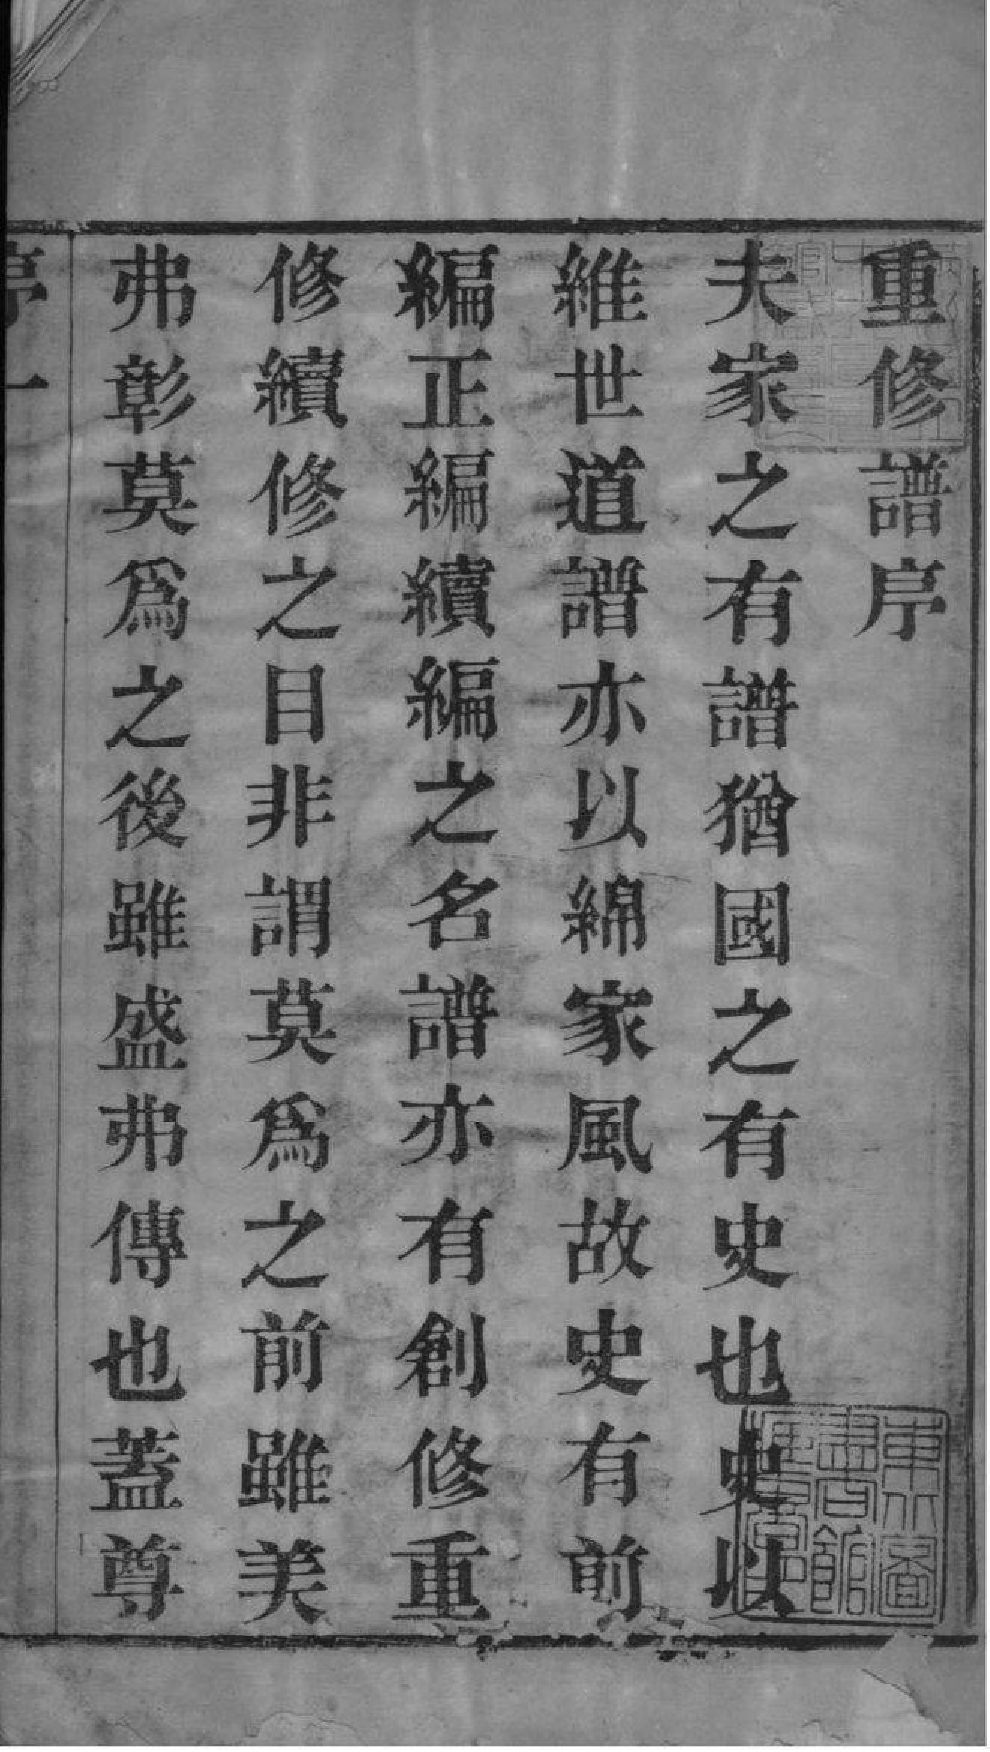 重修譜序
夫家之有譜猶國之有史也史以
維世道譜亦以綿家風故史有前
編正編續編之名譜亦有創修重
修續修之目非謂莫爲之前雖美
弗彰莫爲之後雖盛弗傳也蓋尊
序一